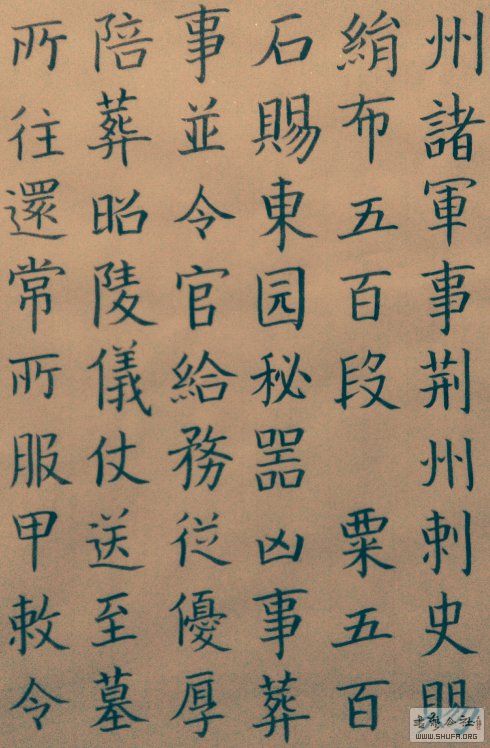 州諸軍事荆州刺史賻
絹布五百段 粟五百
石賜東园秘器凶事葬
事並令官給務從優厚
陪葬昭陵儀仗送至墓
所往還常所服甲敕令
WWW.SHUFA.ORG